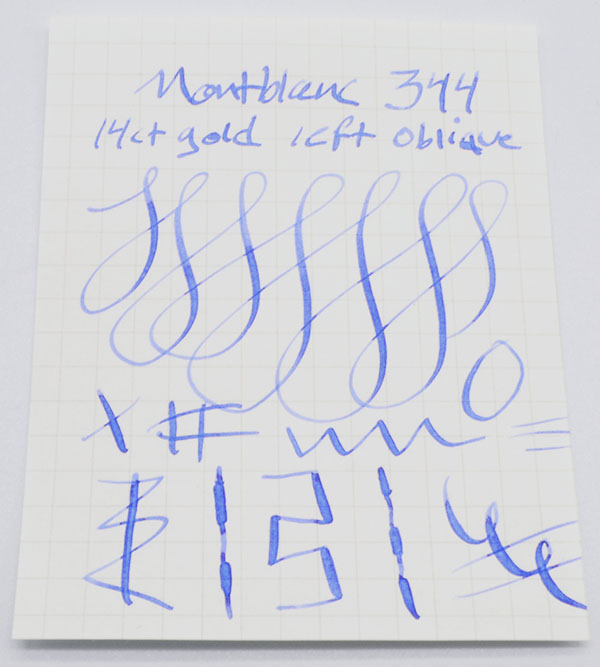 Montblanc 344
14ct gold left oblique